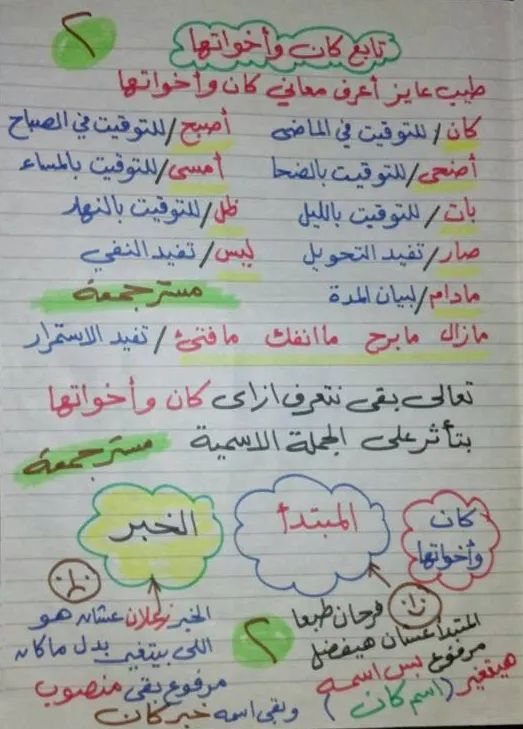 ٢
تابع كان وأخواتها
طيب عايز أعرف معاني كان وأخواتها
كان / للتوقيت في الماضى أصبح / للتوقيت في الصباح
أضحى / للتوقيت بالضحا أمسى / للتوقيت بالمساء
بات / للتوقيت بالليل ظل / للتوقيت بالنهار
صار / تفيد التحويل ليس / تفيد النفي
مادام / لبيان المدة مستر جمعة
مازال مابرح ماانفك مافتئ / تفيد الاستمرار
تعالى بقى نتعرف ازاى كان وأخواتها
بتأثر على الجملة الاسمية مستر جمعة
كان وأخواتها
المبتدأ
الخبر
المبتدأ فرحان طبعا
عشان هيفضل
مرفوع بس اسمه
هيتغير (اسم كان)
٢
الخبر زعلان عشان هو
اللى بيتغير بدل ماكان
مرفوع بقى منصوب
وبقى اسمه خبر كان